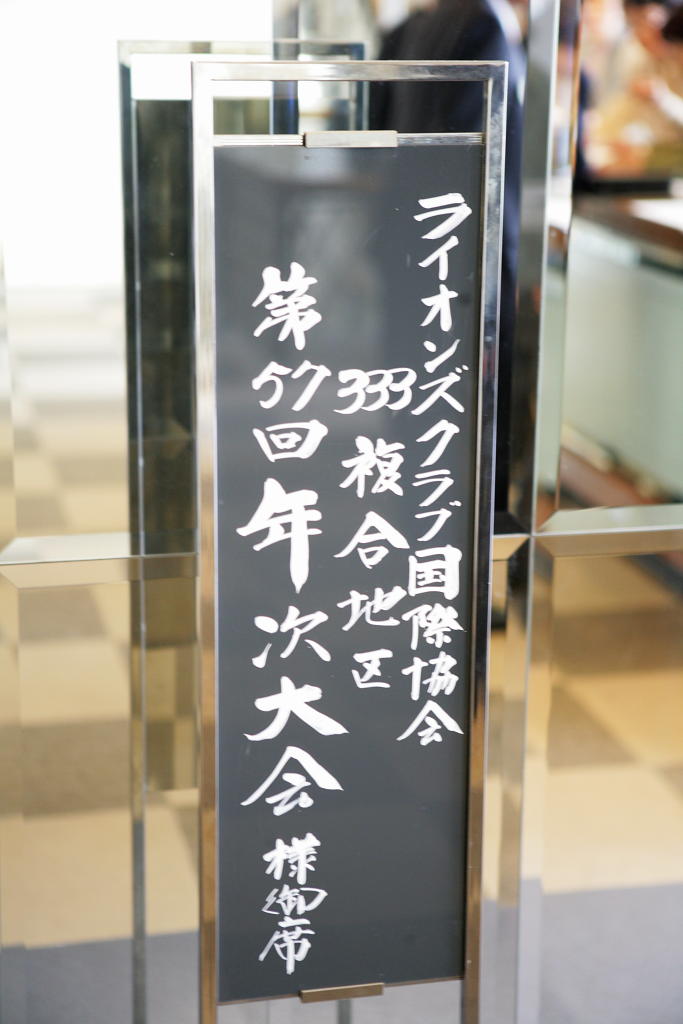 ライオンズクラブ国際協会
333複合地区
第57回年次大会様御席